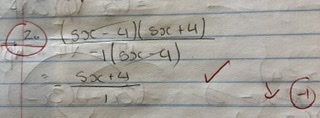 2. (5x - 4)(5x + 4)
-1(5x - 4)
= 5x + 4
1
✓ ↓ -1